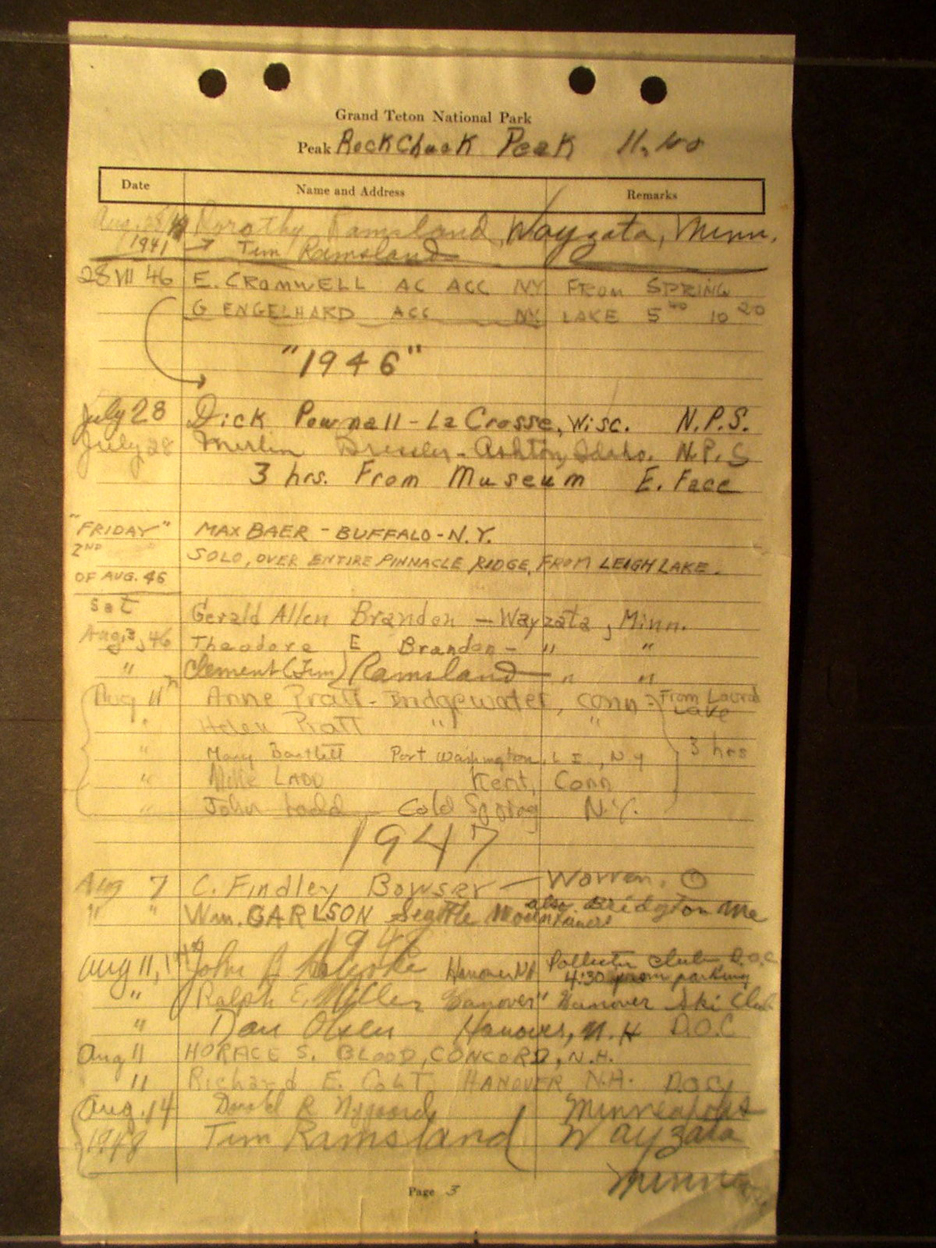 Grand Teton National Park
Peak RockChuck Peak 11,
Date Name and Address Remarks
Dorothy Ramsland, Wayzata, Minn.
1941 → Tim Ramsland
28 VII 46 E. CROMWELL AC ACC NY FROM SPRING
G ENGELHARD ACC NY LAKE 5 10 20
"1946"
July 28 Dick Pownall - La Crosse, Wisc. N.P.S.
July 28 Merlin Dressler - Ashton, Idaho. N.P.S
3 hrs. From Museum E. Face
"FRIDAY" MAX BAER - BUFFALO - N.Y.
2ND SOLO, OVER ENTIRE PINNACLE RIDGE, FROM LEIGH LAKE.
OF AUG. 46
Sat Gerald Allen Branden - Wayzata, Minn.
Aug, 3, 46 Theodore E Branden - " "
" Clement (Tim) Ramsland - " "
Aug 11 Anne Pratt - Bridgewater, Conn From
Lake
" Helen Pratt " "
" Mary Bartlett Port Washington, L I, N Y 3 hrs
" LADD Kent, Conn
" John Ladd Cold Spring N.Y.
1947
Aug 7 C. Findley Bowser - Warren, O
also Bridgton Me
" " Wm. GARLSON Seattle Mountaineers
1948
Aug 11, John Hanover NH Club D.O.C
4:30 from parking
" Ralph E. Miller Hanover" Hanover Ski Club
" Dan Olsen Hanover, N.H D.O.C
Aug 11 HORACE S. BLOOD, CONCORD, N.H.
" Richard E. Colt, HANOVER N.H.
Aug. 14 Donald R Nygaard Minneapolis
1948 Tim Ramsland Wayzata
Minn
Page 3